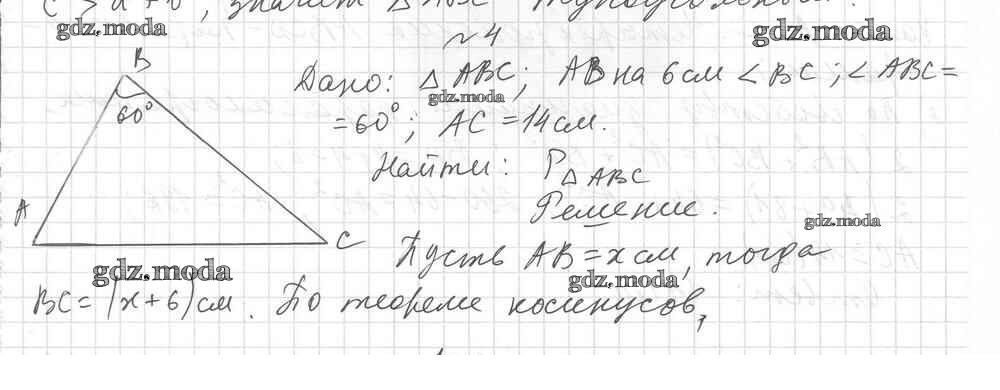 c > a + b, значит △ABC тупоугольный.
gdz.moda
gdz.moda
~4
B
60°
A
C
Дано: △ABC; AB на 6 см < BC; ∠ABC =
gdz.moda
= 60°; AC = 14 см.
Найти: P△ABC
Решение.
gdz.moda
Пусть AB = x см, тогда
gdz.moda
gdz.moda
BC = (x + 6) см. По теореме косинусов,